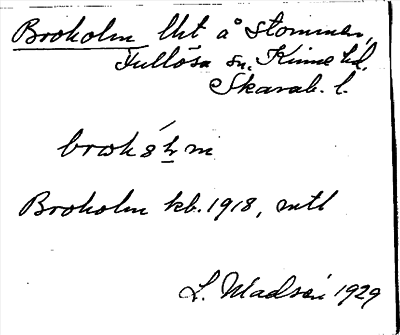 Broholm lht å Stommen,
Fullösa sn. Kinne hd.
Skarab. l.
Broholm kb. 1918, mtl
L. Madsén 1929